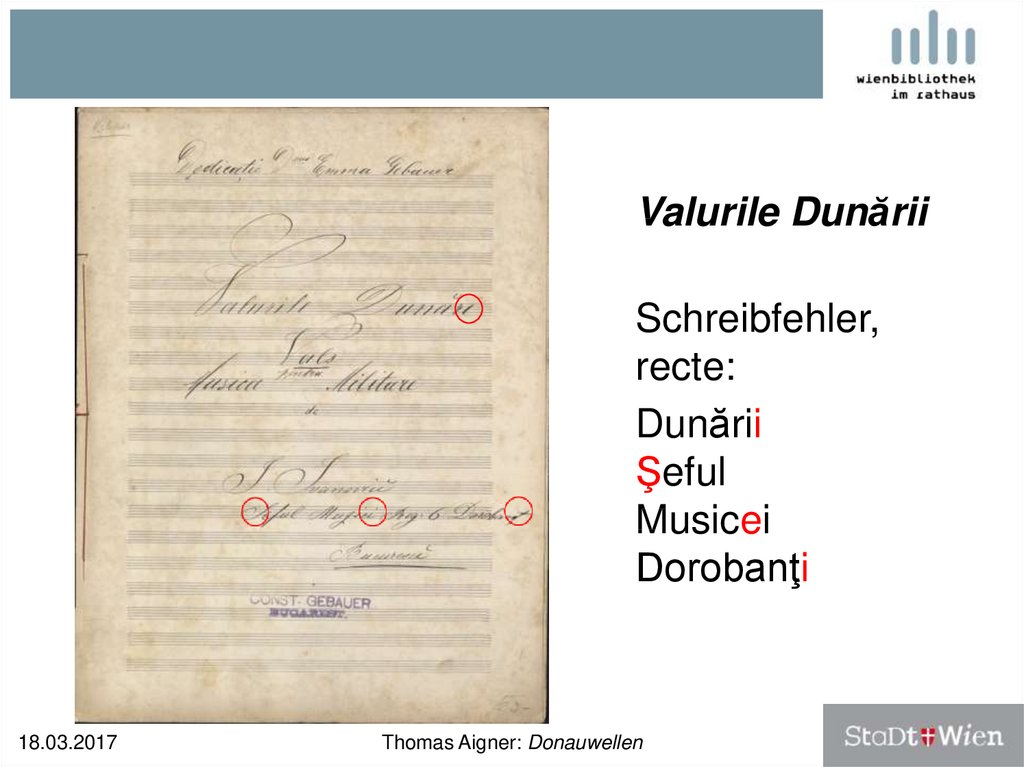 wienbibliothek
im rathaus
Dedicatie Dnei Emma Gebauer
Valurile Dunăre
Vals
pentru
Musica Militare
de
I. Ivanoviciŭ
Reg. 6 Dorobanț
Bucurescĭ
CONST. GEBAUER
BUCAREST.
Valurile Dunării
Schreibfehler,
recte:
Dunării
Şeful
Musicei
Dorobanţi
18.03.2017
Thomas Aigner: Donauwellen
StaDt Wien